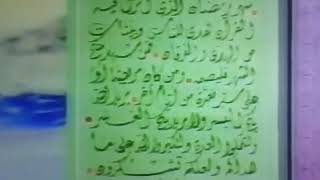 شهر رمضان الذي أنزل فيه
القرآن هدى للناس وبينات
من الهدى والفرقان فمن شهد منكم
الشهر فليصمه ومن كان مريضا أو
على سفر فعدة من أيام أخر يريد الله
بكم اليسر ولا يريد بكم العسر
ولتكملوا العدة ولتكبروا الله على ما
هداكم ولعلكم تشكرون